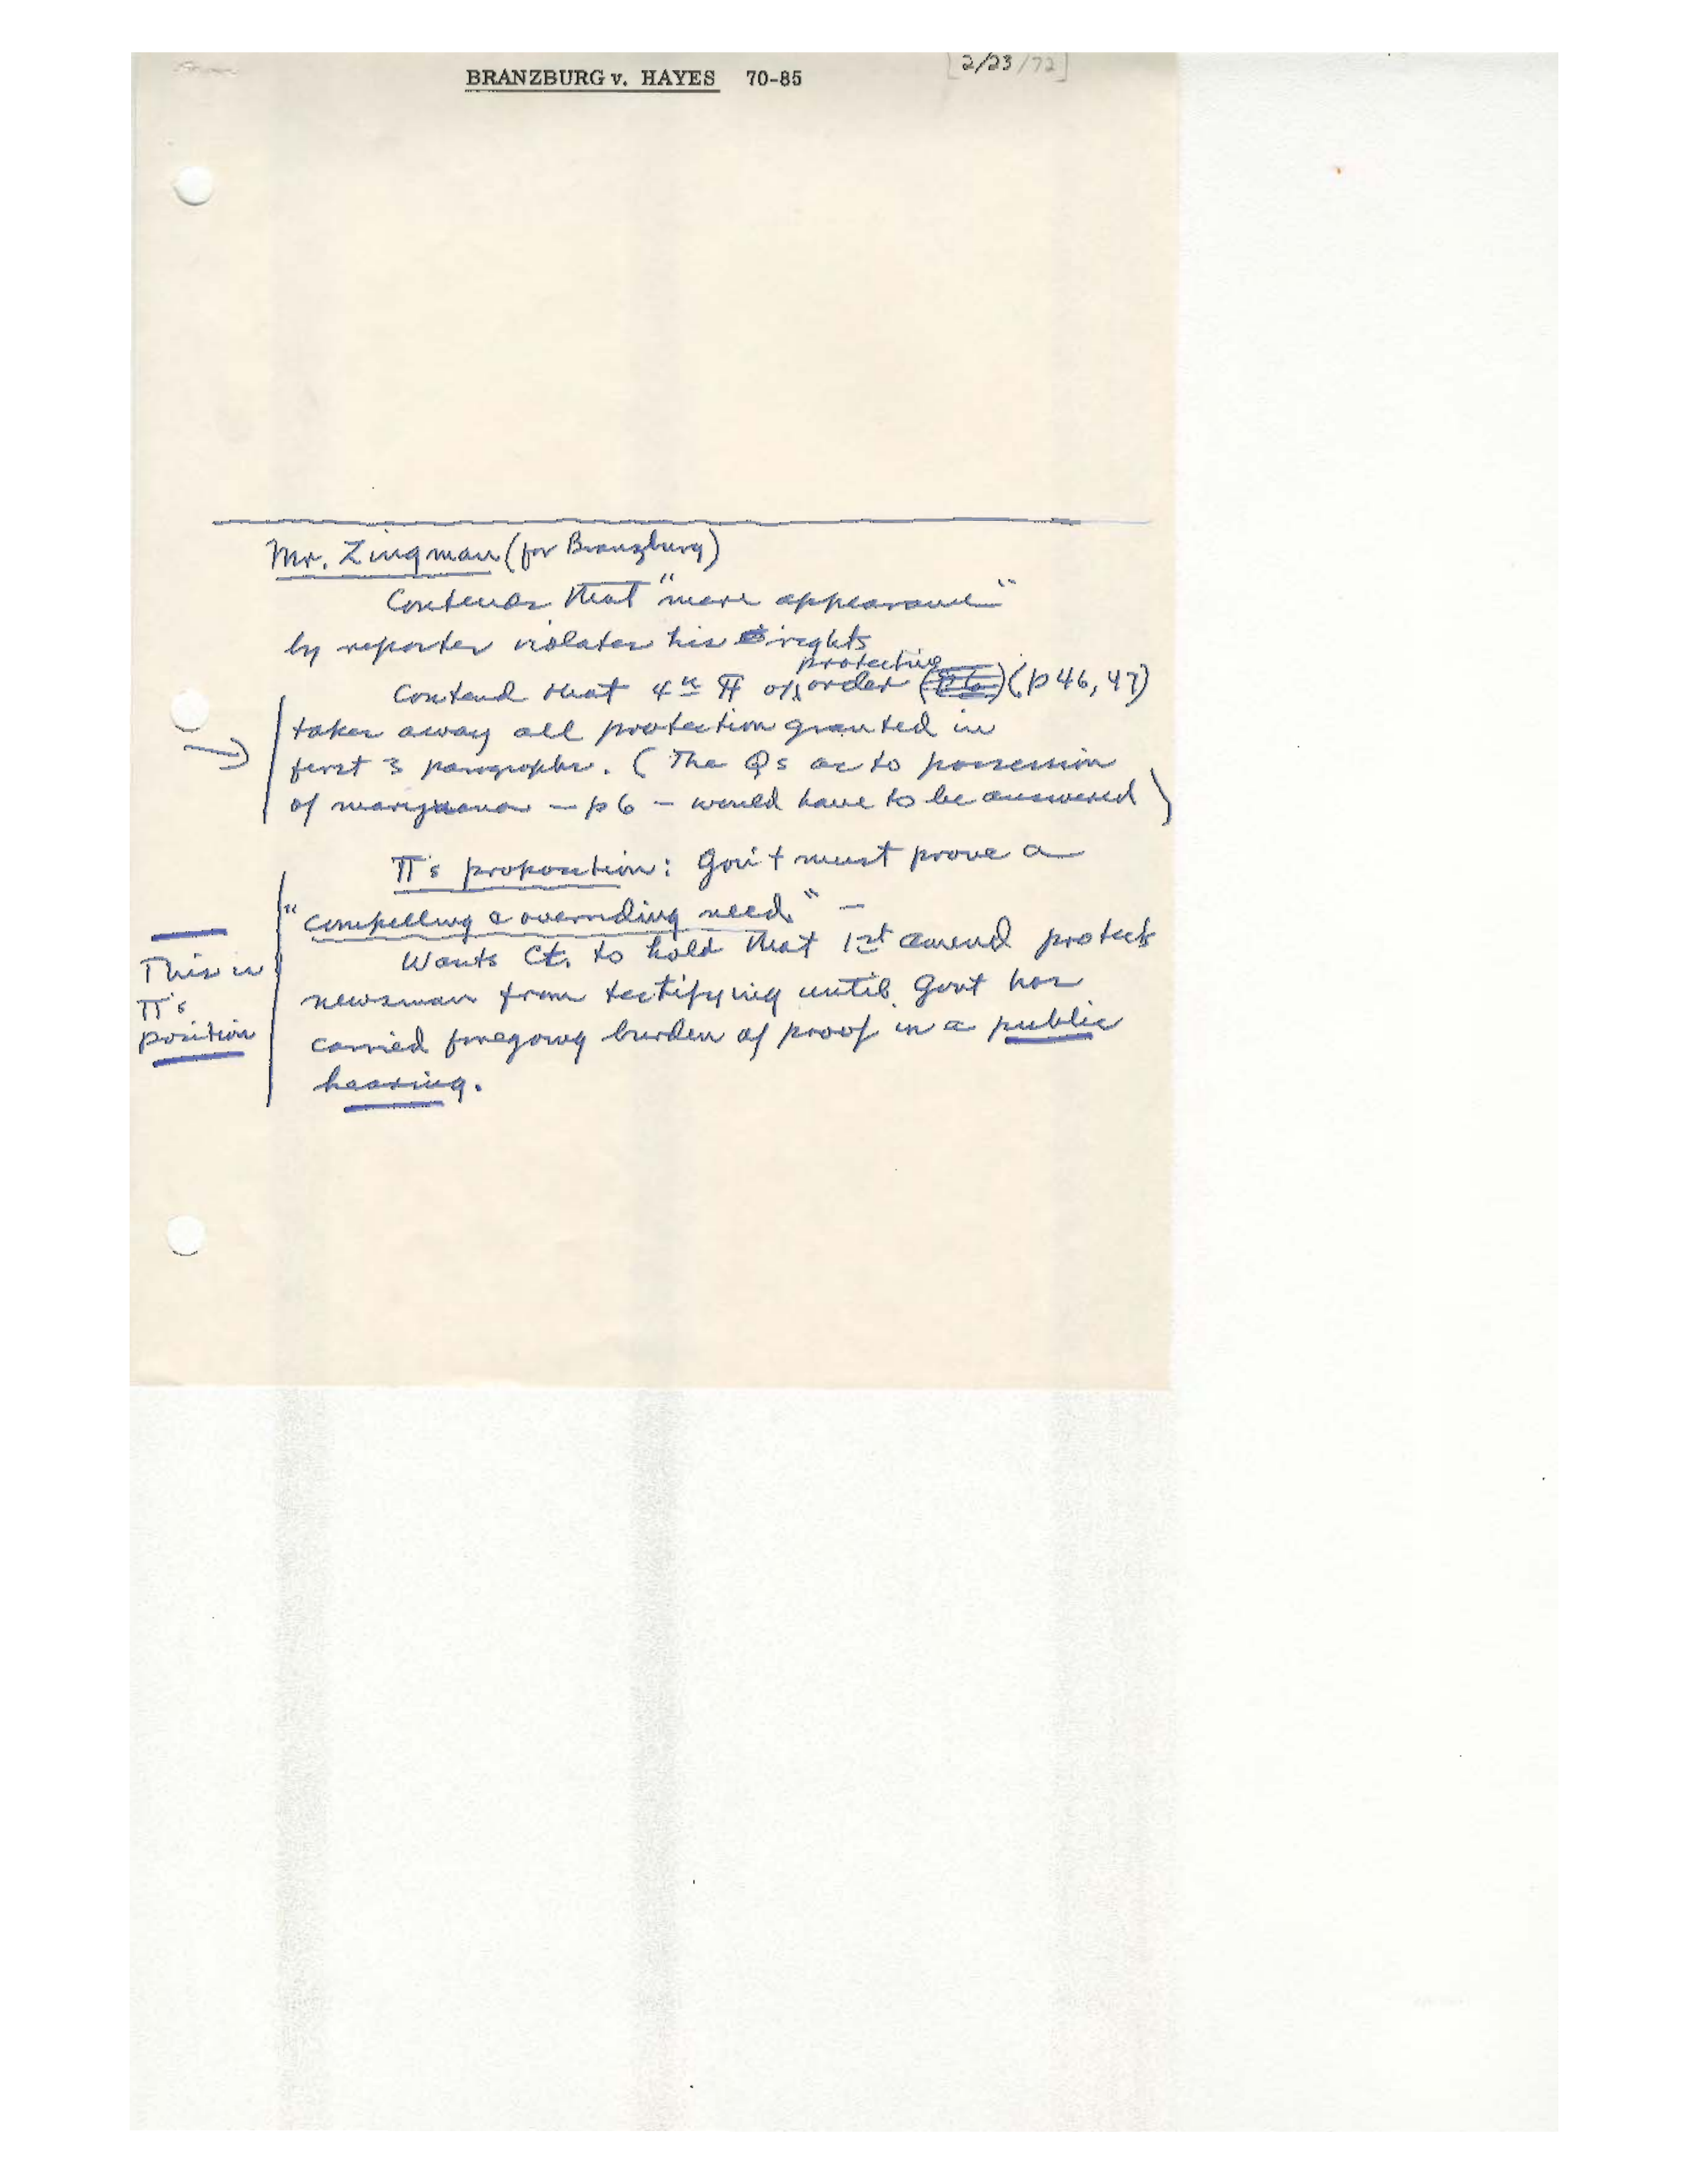 BRANZBURG v. HAYES 70-85
[2/23/72]
Mr. Zingman (for Branzburg)
Contends that "mere appearance"
by reporter violates his rights
Contend that 4th ¶ of protective order (p 46, 47)
takes away all protection granted in
first 3 paragraphs. (The Qs as to possession
of marijuana — p 6 — would have to be answered)
π's proposition: Gov't must prove a
"compelling & overriding need" —
Wants Ct. to hold that 1st amend protects
newsman from testifying until Govt has
carried foregoing burden of proof in a public
hearing.
This is
π's
position